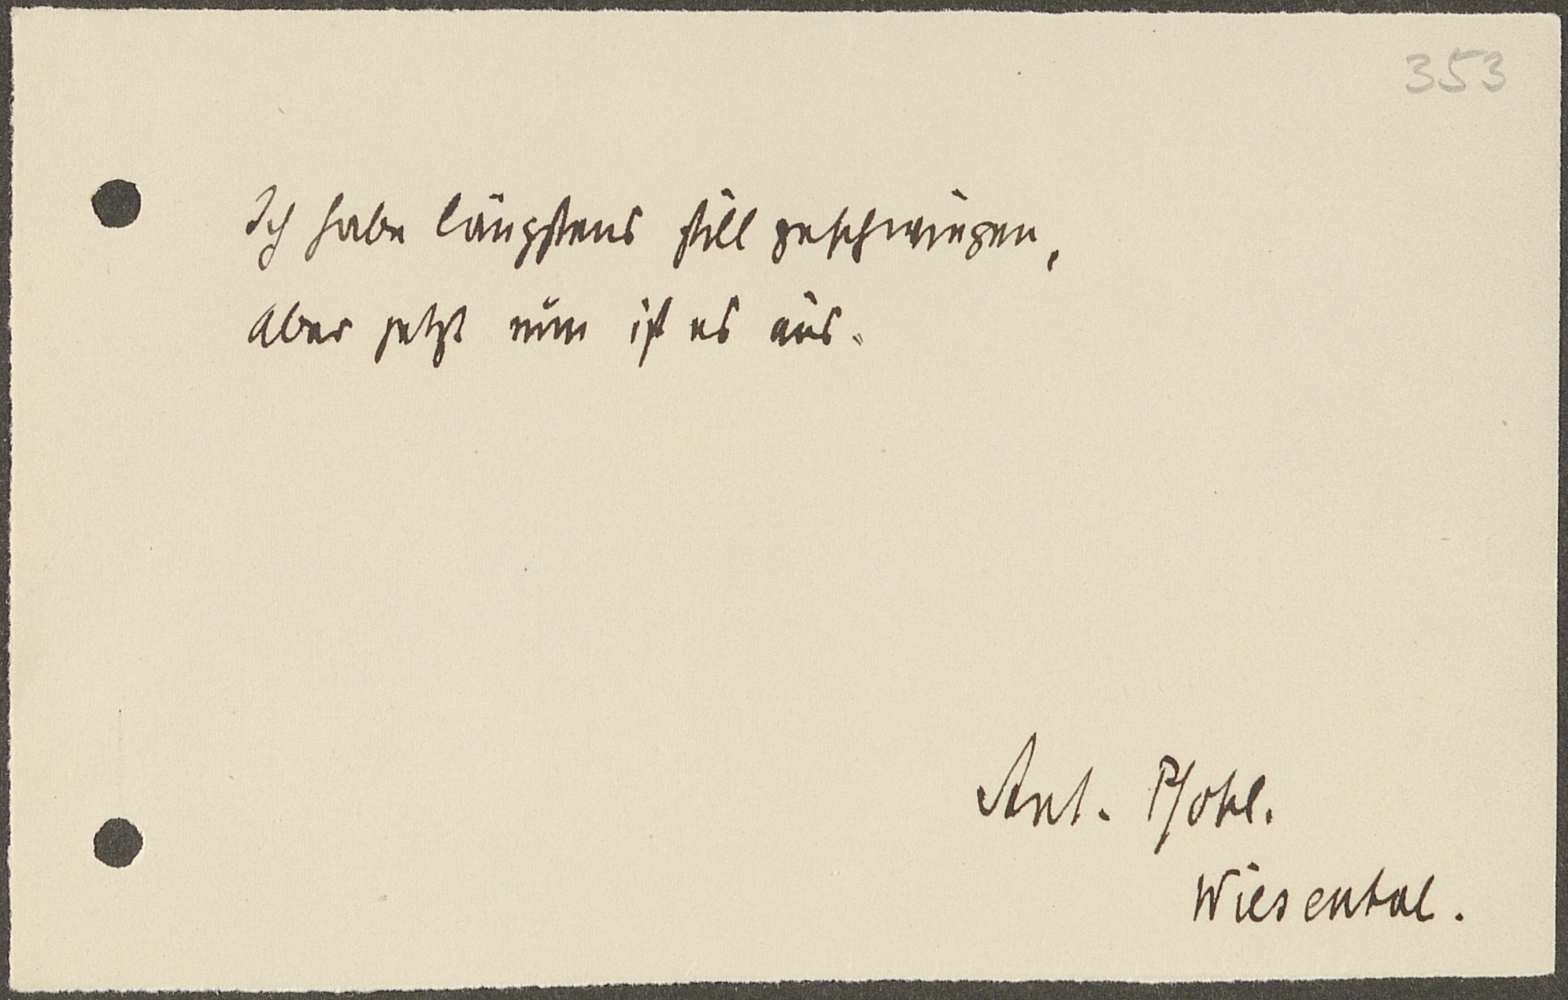 353
Ich habe längstens still geschwiegen,
aber jetzt nun ist es aus.
Ant. Pfohl.
Wiesental.